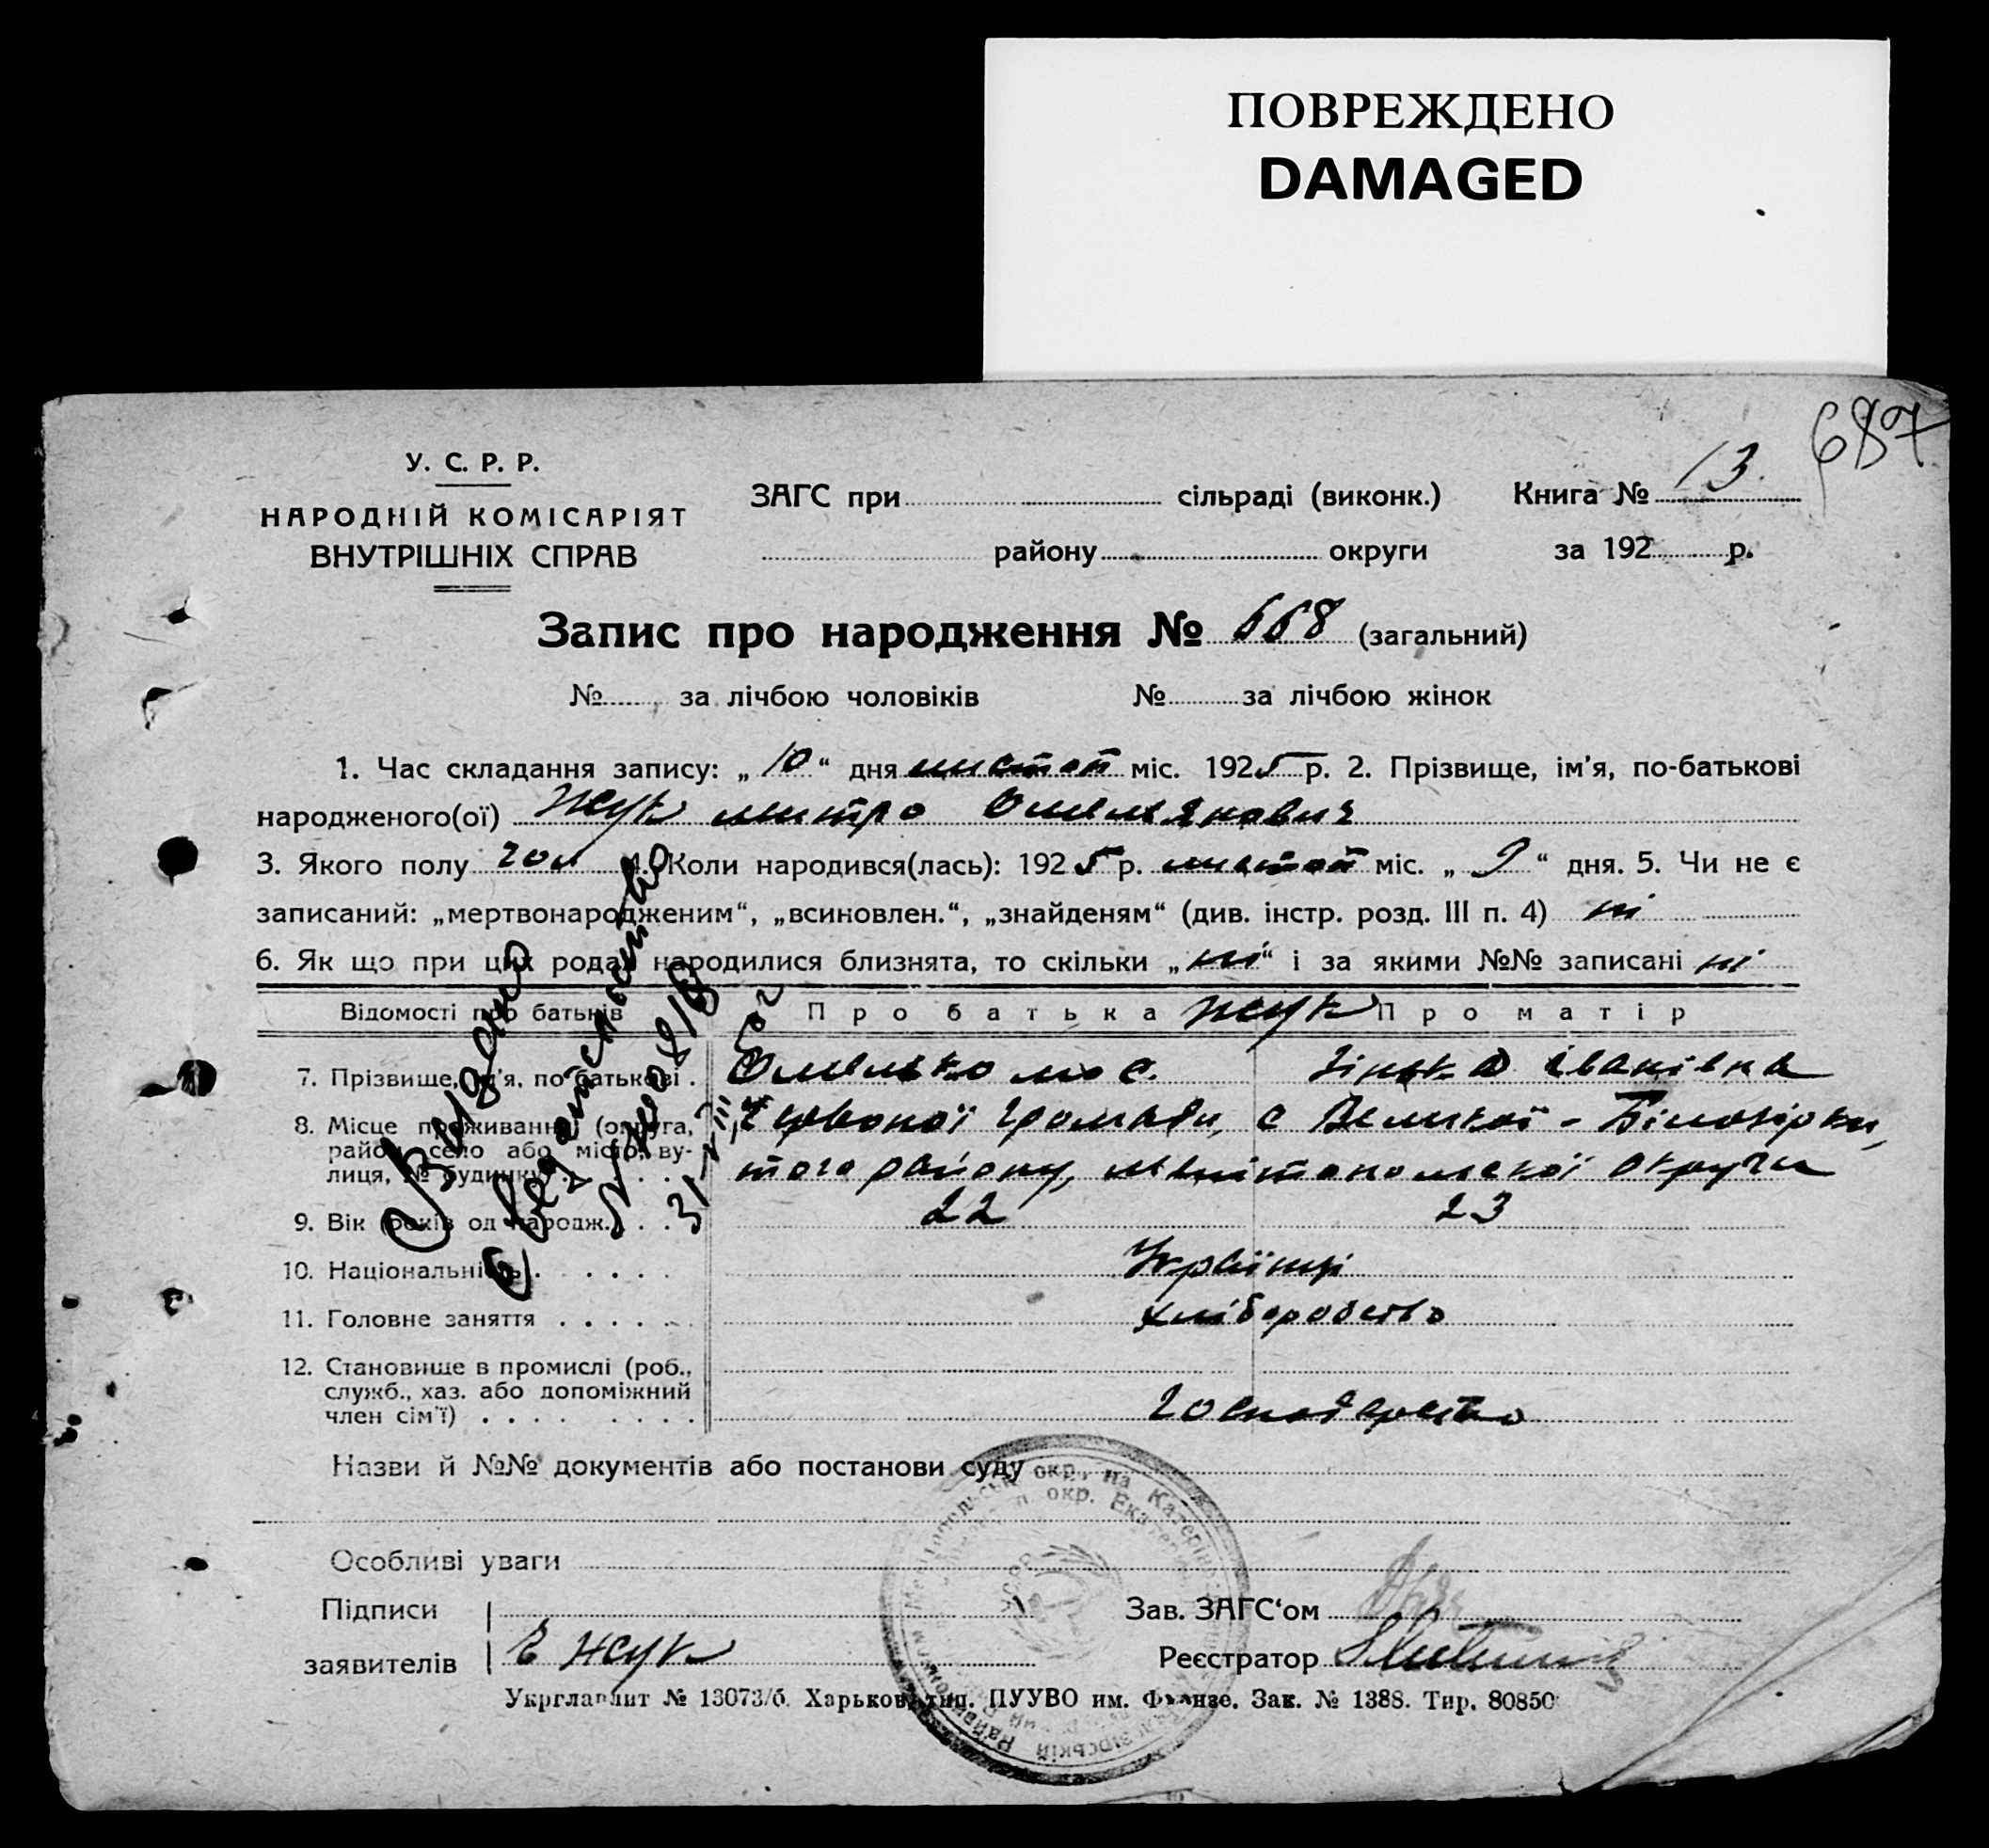 ПОВРЕЖДЕНО
DAMAGED
687
У. С. Р. Р.
НАРОДНІЙ КОМІСАРІЯТ
ВНУТРІШНІХ СПРАВ
ЗАГС при сільраді (виконк.) Книга № 13.
району округи за 192 р.
Запис про народження № 668 (загальний)
№ за лічбою чоловіків № за лічбою жінок
1. Час складання запису: „10“ дня листоп міс. 1925 р. 2. Прізвище, ім’я, по-батькові
народженого(ої) Жук Митро Омелянович
3. Якого полу чол 4. Коли народився(лась): 1925 р. листоп міс. „9“ дня. 5. Чи не є
записаний: „мертвонародженим“, „всиновлен.“, „знайденям“ (див. інстр. розд. III п. 4) ні
6. Як що при цих родах народилися близнята, то скільки „ні“ і за якими №№ записані ні
Відомості про батьків Про батька Жук Про матір
7. Прізвище, ім’я, по батькові . Омелько Зінька Іванівна
8. Місце проживання (округа, район, село або місто, вулиця, № будинку) громади, с Великої-Білозірки,
того району, Мелітопольскої округи
9. Вік (років од народж.) . . 22 23
10. Національність . . . . . Українці
11. Головне заняття . . . . . . хліборобство
12. Становище в промислі (роб.,
служб., хаз. або допоміжний
член сім’ї) . . . . . . . . . господарство
Видано
свидетельство
31
Назви й №№ документів або постанови суду
Особливі уваги
Підписи Зав. ЗАГС‘ом
заявителів Е Жук Реєстратор
Укрглавліт № 13073/б. Харьков, тип. ПУУВО им. Фрунзе. Зак. № 1388. Тир. 80850